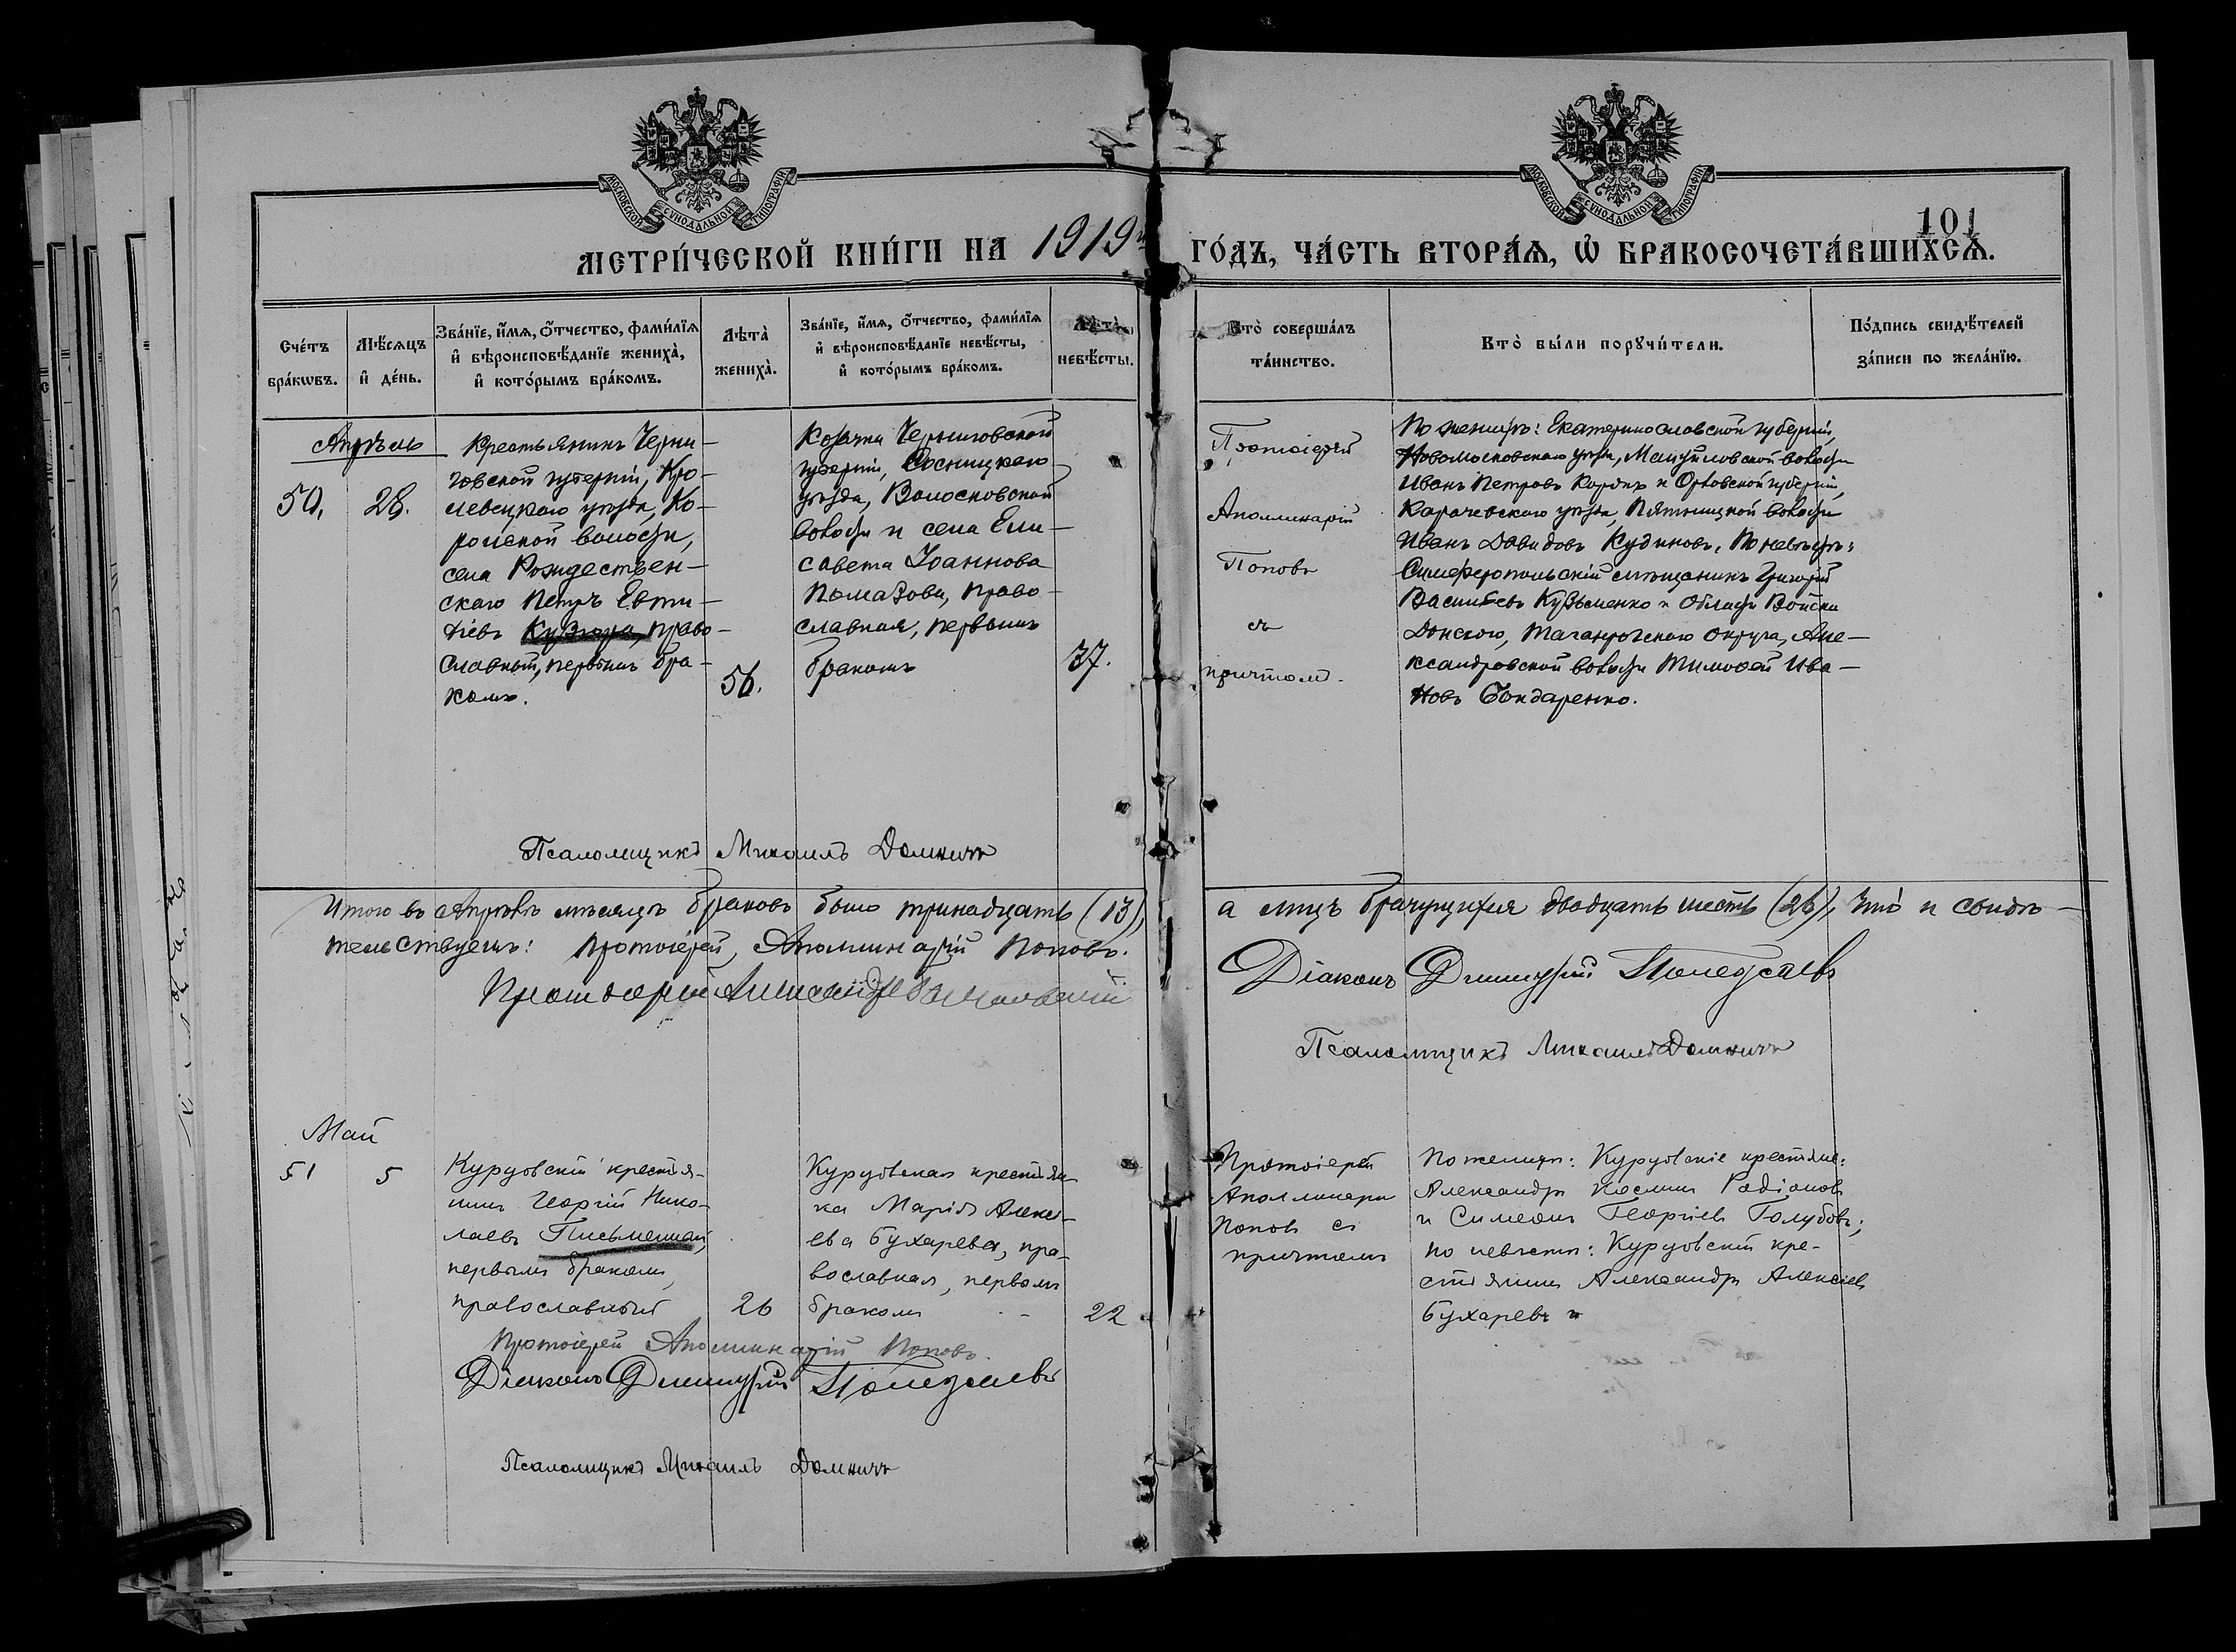 МОСКОВСКОЙ СѴНОДАЛЬНОЙ ТИПОГРАФІИ
МОСКОВСКОЙ СѴНОДАЛЬНОЙ ТИПОГРАФІИ
101
МЕТРИ́ЧЕСКОЙ КНИ́ГИ НА 1919й ГО́ДЪ, ЧА́СТЬ ВТОРА́Ѧ, Ѡ҆ БРАКОСОЧЕТА́ВШИХСѦ.
Сче́тъ
бра́кѡвъ.
Мѣ́сяцъ
и҆ де́нь.
Зва́нїе, и҆́мѧ, ѻ҆́тчество, фами́лїѧ
и҆ вѣроисповѣ́данїе жениха̀,
и҆ кото́рымъ бра́комъ.
Лѣта̀
жениха̀.
Зва́нїе, и҆́мѧ, ѻ҆́тчество, фами́лїѧ
и҆ вѣроисповѣ́данїе невѣ́сты,
и҆ кото́рымъ бра́комъ.
Лѣта̀
невѣ́сты.
Кто̀ соверша́лъ
та́инство.
Кто̀ бы́ли порꙋчи́тели.
По́дпись свидѣ́телей
за́писи по жела́нїю.
Апрѣль
50.
28.
Крестьянинъ Черни-
говской губерніи, Кро-
левецкаго уѣзда, Ко-
ропской волости,
села Рождествен-
скаго Петръ Евти-
хіевъ Кузюра, право-
славный, первымъ бра-
комъ.
56.
Козачка Черниговской
губерніи, Сосницкаго
уѣзда, Волосковской
волости и села Ели-
савета Іоаннова
Помазова, право-
славная, первымъ
бракомъ
37.
Протоіерей
Аполлинарій
Поповъ
съ
причтомъ.
По женихѣ: Екатеринославской губерніи,
Новомосковскаго уѣзда, Мануйловской волости
Иванъ Петровъ и Орловской губерніи,
Карачевскаго уѣзда, Пятницкой волости
Иванъ Давидовъ Кудиновъ. По невѣстѣ:
Симферопольскій мѣщанинъ Григорій
Васильевъ Кузьменко и Области Войска
Донского, Таганрогскаго округа, Але-
ксандровской волости Тимофей Ива-
новъ Бондаренко.
Псаломщикъ Михаилъ Домничъ
Итого въ Апрѣлѣ мѣсяцѣ браковъ было тринадцать (13),
а лицъ брачущихся двадцать шесть (26), что и свидѣ-
тельствуемъ: Протоіерей Аполлинарій Поповъ.
Протоіерей
Діаконъ Димитрій Полежаевъ
Псаломщикъ Михаилъ Домничъ
Май
51
5
Курцовскій крестья-
нинъ Георгій Нико-
лаевъ Письменный,
первымъ бракомъ,
православный
26
Курцовская крестьян-
ка Марія Алексі-
ева Бухарева, пра-
вославная, первымъ
бракомъ
22
Протоіерей
Аполлинарій
Поповъ съ
причтомъ
По женихѣ: Курцовскіе крестьяне:
Александръ Космин Радіоновъ
и Симеонъ Георгіевъ Голубовъ;
по невѣстѣ: Курцовскій кре-
стьянинъ Александръ Алексіевъ
Бухаревъ и
Протоіерей Аполлинарій Поповъ.
Діаконъ Димитрій Полежаевъ
Псаломщикъ Михаилъ Домничъ